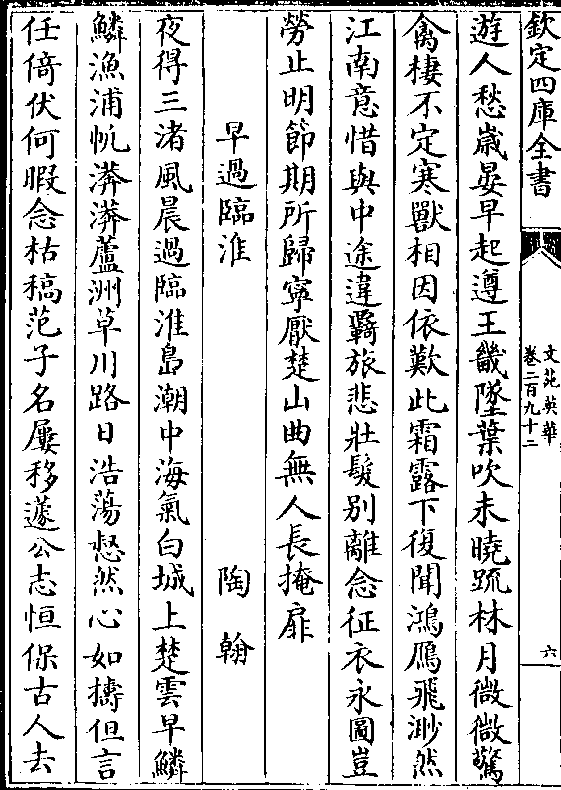 欽定四庫全書
文苑英華
卷二百九十二
六
遊人愁歲晏早起遵王畿墜葉吹未曉踈林月微微驚
禽棲不定寒獸相因依歎此霜露下復聞鴻鴈飛渺然
江南意惜與中途違羇旅悲壯髮别離念征衣永圖豈
勞止明節期所歸寧厭楚山曲無人長掩扉
早過臨淮
陶翰
夜得三渚風晨過臨淮島潮中海氣白城上楚雲早鱗
鱗漁浦帆漭漭蘆洲草川路日浩蕩惄然心如擣但言
任倚伏何暇念枯稿范子名屢移蘧公志恒保古人去